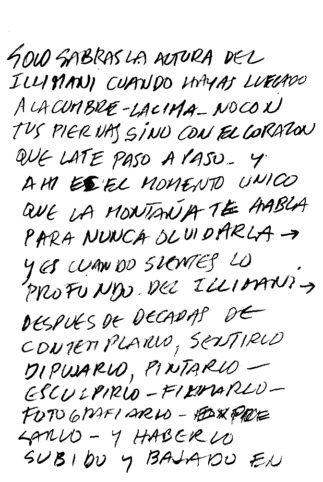 SOLO SABRAS LA ALTURA DEL
ILLIMANI CUANDO HAYAS LLEGADO
A LA CUMBRE - LA CIMA - NO CON
TUS PIERNAS SINO CON EL CORAZON
QUE LATE PASO A PASO - Y
AHI ES EL MOMENTO UNICO
QUE LA MONTAÑA TE HABLA
PARA NUNCA OLVIDARLA →
Y ES CUANDO SIENTES LO
PROFUNDO DEL ILLIMANI →
DESPUES DE DECADAS DE
CONTEMPLARLO, SENTIRLO
DIBUJARLO, PINTARLO -
ESCULPIRLO - FILMARLO -
FOTOGRAFIARLO - EXPRE
SARLO - Y HABERLO
SUBIDO Y BAJADO EN